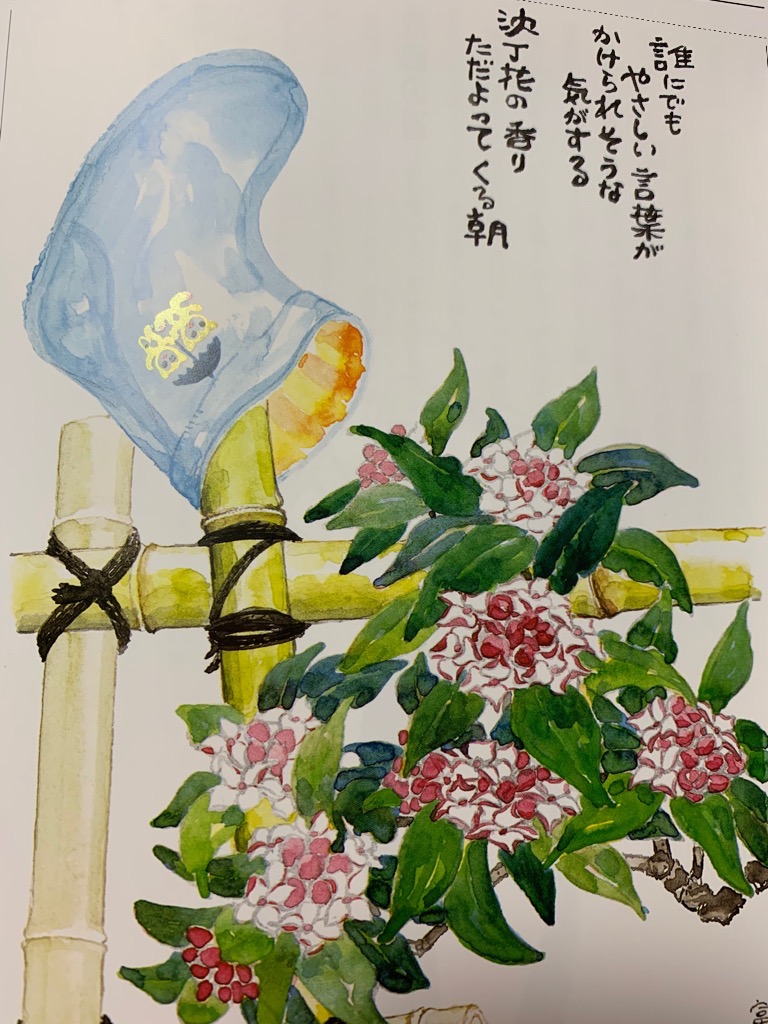 誰にでも
やさしい言葉が
かけられそうな
気がする
沈丁花の香り
ただよってくる朝